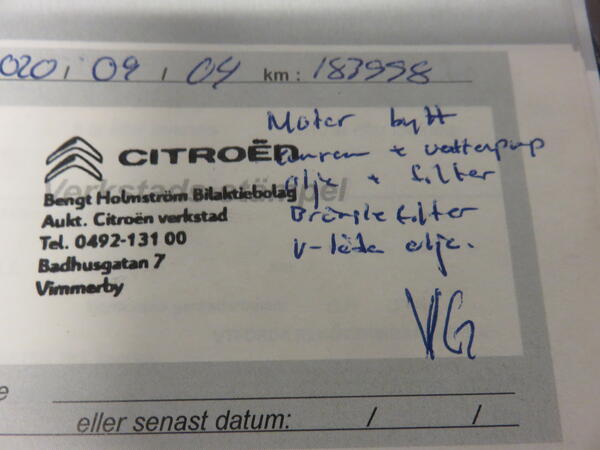 020, 09, 04 km: 183998
Motor bytt
CITROËN
Kamrem + vattenpump
Verkstadsstämpel
Olje + filter
Bengt Holmström Bilaktiebolag
Aukt. Citroën verkstad
Bränslefilter
Tel. 0492-131 00
V-låda olje.
Badhusgatan 7
Vimmerby
VG
eller senast datum: / /